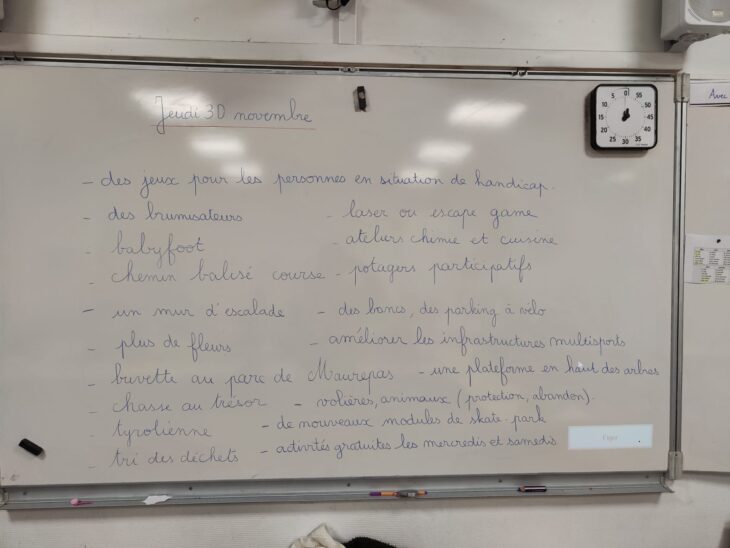 Jeudi 30 novembre
- des jeux pour les personnes en situation de handicap.
- des brumisateurs - laser ou escape game
- babyfoot - ateliers chimie et cuisine
- chemin balisé course - potagers participatifs
- un mur d'escalade - des bancs, des parking à vélo
- plus de fleurs - améliorer les infrastructures multisports
- buvette au parc de Maurepas - une plateforme en haut des arbres
- chasse au trésor - volières, animaux (protection, abandon).
- tyrolienne - de nouveaux modules de skate-park
- tri des déchets - activités gratuites les mercredis et samedis
0 55 50 45 40 35 30 25 20 15 10 5
Avec